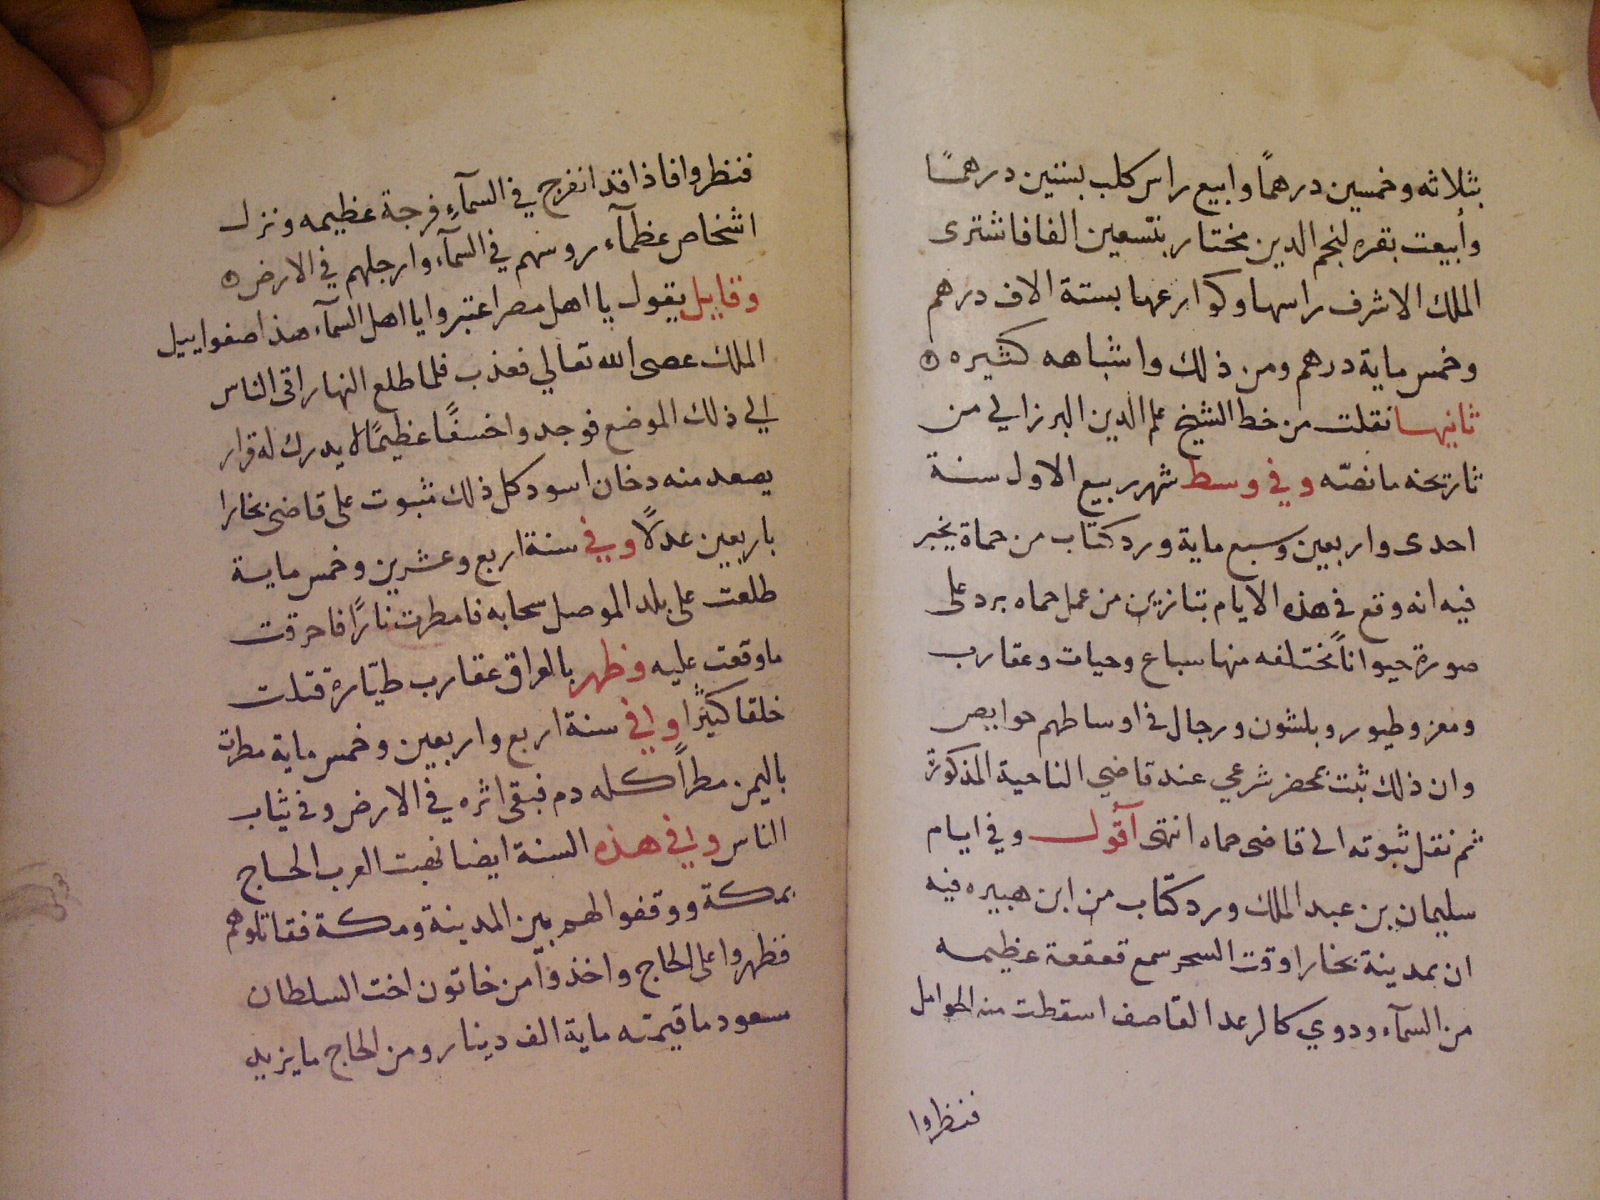 بثلاثه وخمسين درهمًا وابيع راس كلب بستين درهمًا
وأبيعت بقره لنجم الدين مختار بتسعين الفا فاشترى
الملك الاشرف راسها وكوارعها بستة الاف درهم
وخمس ماية درهم ومن ذلك واشباهه كثيره
ثانيها نقلت من خط الشيخ علم الدين البرزالي من
تاريخه ما نصّه وفي وسط شهر ربيع الاول سنة
احدى واربعين وسبع ماية ورد كتاب من حماة يخبر
فيه انه وقع في هذه الايام بتنازين من عمل حماه برد على
صورة حيواناً مختلفه منها سباع وحيات وعقارب
ومعز وطيور وبلشون ورجال في اوساطهم حوايص
وان ذلك ثبت بمحضر شرعي عند قاضي الناحية المذكورة
ثم نقل ثبوته الى قاضى حماه انتهى أقول وفي ايام
سليمان بن عبد الملك ورد كتاب من ابن هبيره فيه
ان بمدينة بخارا وقت السحر سمع قعقعة عظيمه
من السمآء ودوي كالرعد القاصف اسقطت منه الحوامل
فنظروا
فنظروا فاذا قد انفرج في السمآءِ فرجة عظيمه ونزل
اشخاص عظمآء روسهم في السمآء وارجلهم في الارض
وقايل يقول يا اهل مصر اعتبروا يا اهل السمآء هذا صفوائيل
الملك عصى الله تعالي فعذب فلما طلع النهار اتى الناس
الي ذلك الموضع فوجدوا خسفًا عظيمًا لا يدرك له قرار
يصعد منه دخان اسود كل ذلك ثبوت على قاضى بخارا
باربعين عدلًا وفي سنة اربع وعشرين وخمس ماية
طلعت على بلد الموصل سحابه فامطرت نارًا فاحرقت
ما وقعت عليه وظهر بالعراق عقارب طيّارة قتلت
خلقا كثيرًا وفي سنة اربع واربعين وخمس ماية مطرت
باليمن مطراً كله دم فبقى اثره في الارض وفي ثياب
الناس وفي هذه السنة ايضا نهبت العرب الحاج
بمكة ووقفوا لهم بين المدينة ومكة فقاتلوهم
فظهروا على الحاج واخذوا من خاتون اخت السلطان
مسعود ما قيمته ماية الف دينار ومن الحاج ما يزيد